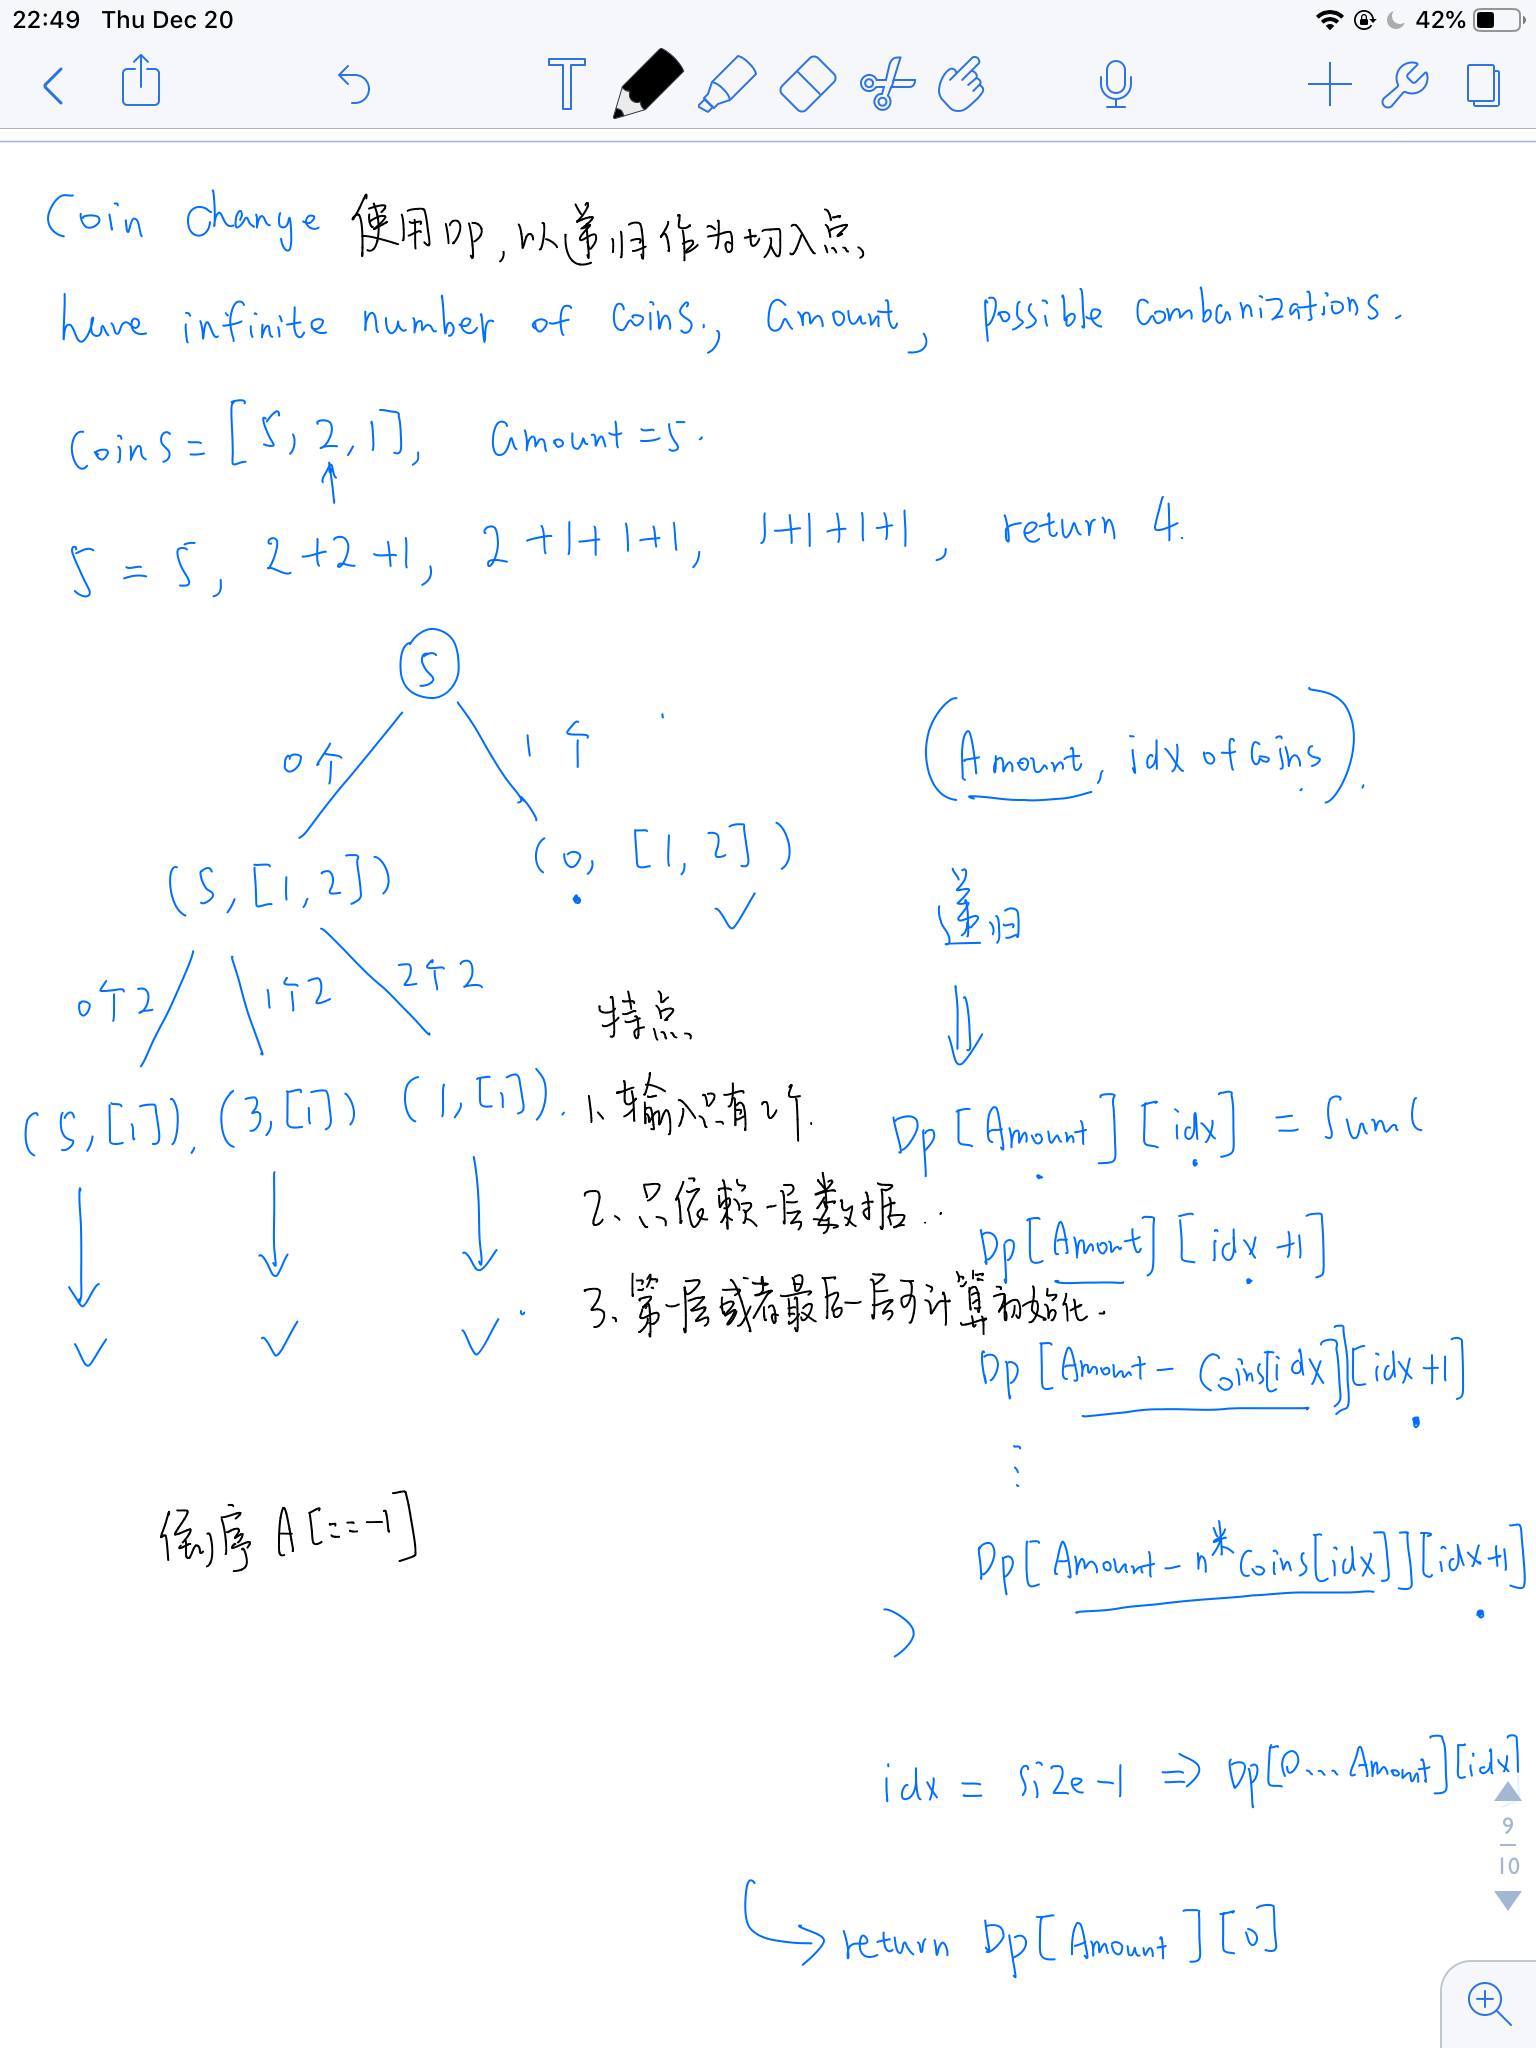 22:49 Thu Dec 20
42%
Coin change 使用DP,以递归作为切入点
have infinite number of coins., amount, possible combanizations.
Coins = [5, 2, 1], amount = 5.
5 = 5, 2+2+1, 2+1+1+1, 1+1+1+1, return 4.
5
0个 1个
(Amount, idx of coins).
(5, [1, 2]) (0, [1, 2])
递归
0个2 1个2 2个2
特点
(5, [1]), (3, [1]) (1, [1]).
1、输入只有2个.
2、只依赖一层数据..
3、第一层或者最后一层可计算初始化.
Dp[Amount][idx] = Sum(
Dp[Amont][idx +1]
Dp[Amont - Coins[idx]][idx+1]
⋮
Dp[Amount - n*Coins[idx]][idx+1]
)
倒序 A[::-1]
idx = size-1 => Dp[0...Amont][idx]
9
10
return Dp[Amount][0]